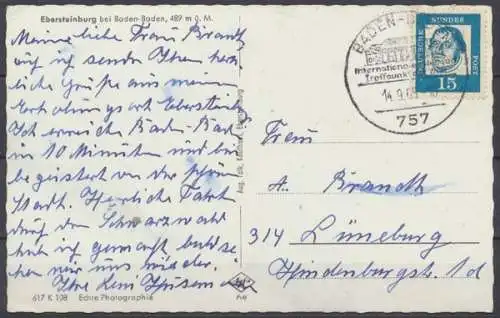 Ebersteinburg bei Baden-Baden, 489 m ü. M.
Meine liebe Frau Brandt
ich sende Ihnen herz-
liche Grüße aus mein
Erholungsort Eberstein
Ich erreiche Baden-Bad
in 10 Minuten und bin
begeistert von der schön
Stadt. Herrliche Fahrt
durch den Schwarzwald
hab ich gemacht bald se-
hen wir uns wieder.
Ihre Leni
617 K 108 Echte Photographie
BADEN-
Internationaler
Treffpunkt
14.9.6
757
DEUTSCHE BUNDESPOST
15
Frau
A. Brandt
314 Lüneburg
Hindenburgstr. 1d